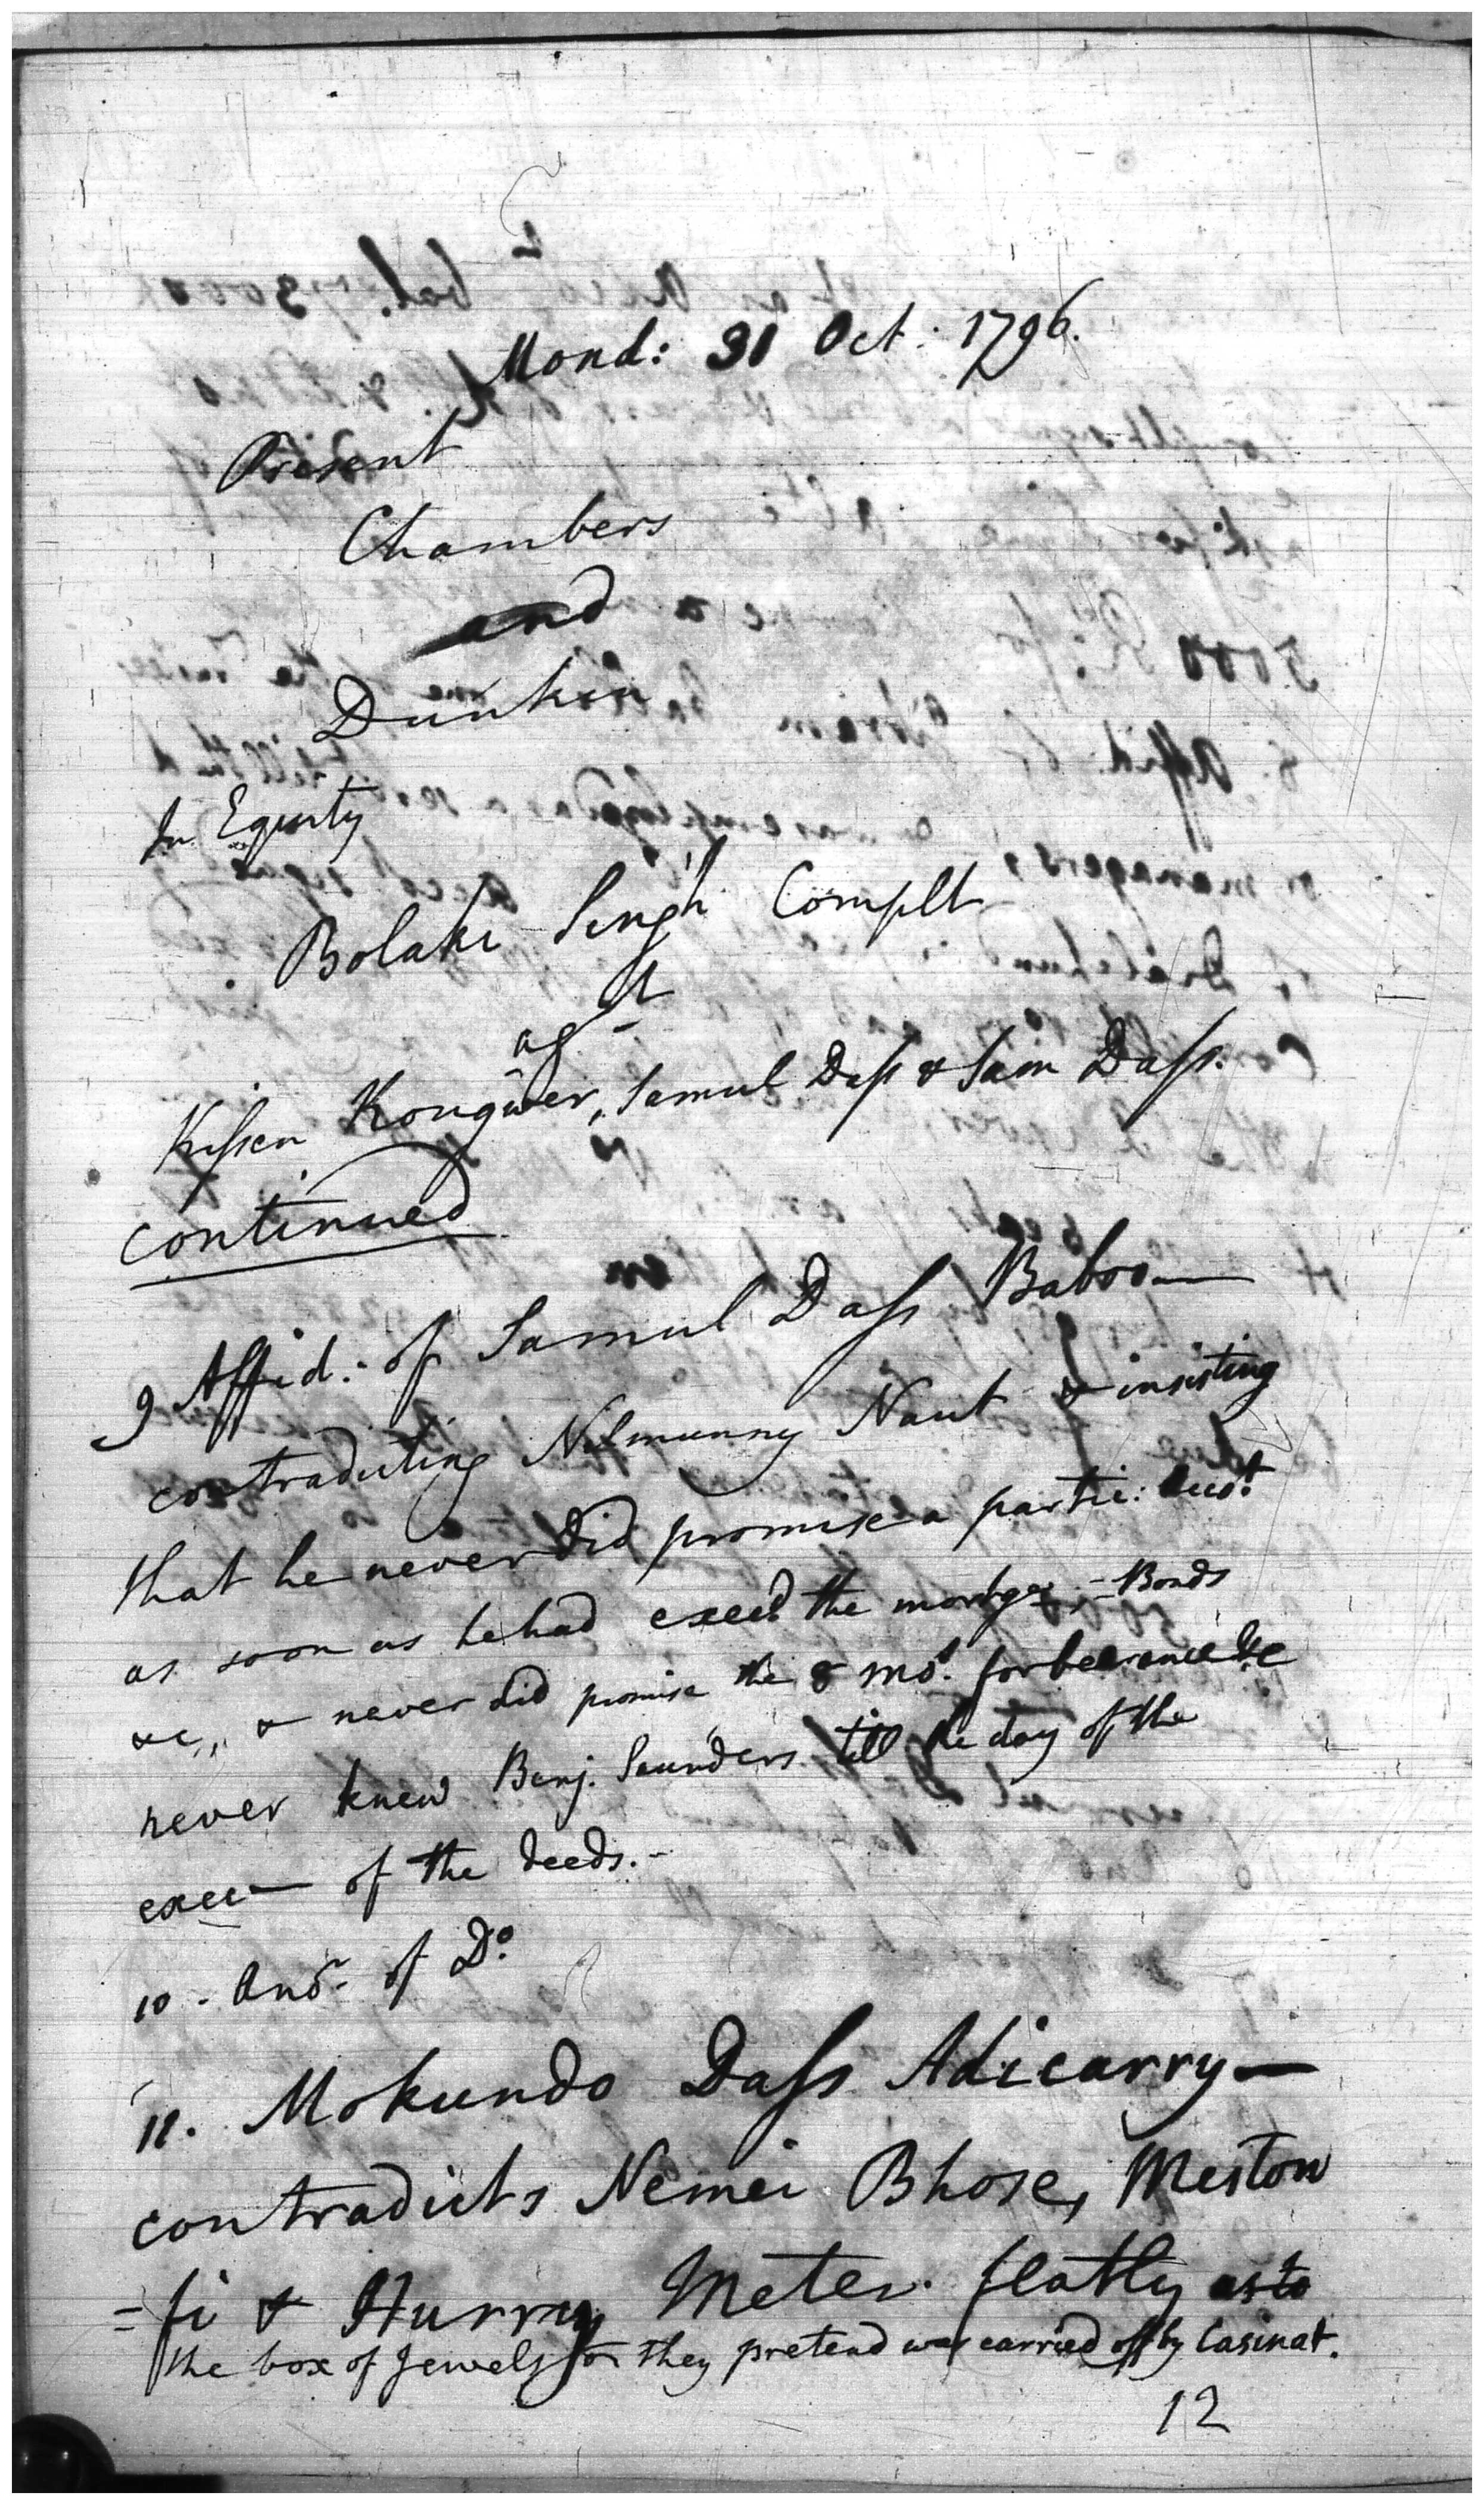 Mond: 31 Oct: 1796.
Present
Chambers
and
Dunkin
In Equity
Bolaki Singh Complt
agst
Kissen Kongwer, Samul Dass & Sam Dass.
continued
9 Affid: of Samul Dass Baboo—
contradicting Nilmunny Naut & insisting
that he never did promise a partic: Acct
as soon as he had execd the mortge, - Bonds
&c, & never did promise the 8 mos. forbearance &c
never knew Benj. Saunders till the day of the
execn of the deeds.-
10 - Ansr of Do
11. Mokundo Dass Adicarry—
contradicts Nemei Bhose, Meston
=fi & Hurry Meter flatly as to
the box of Jewels they pretend was carried off by Casinat.
12